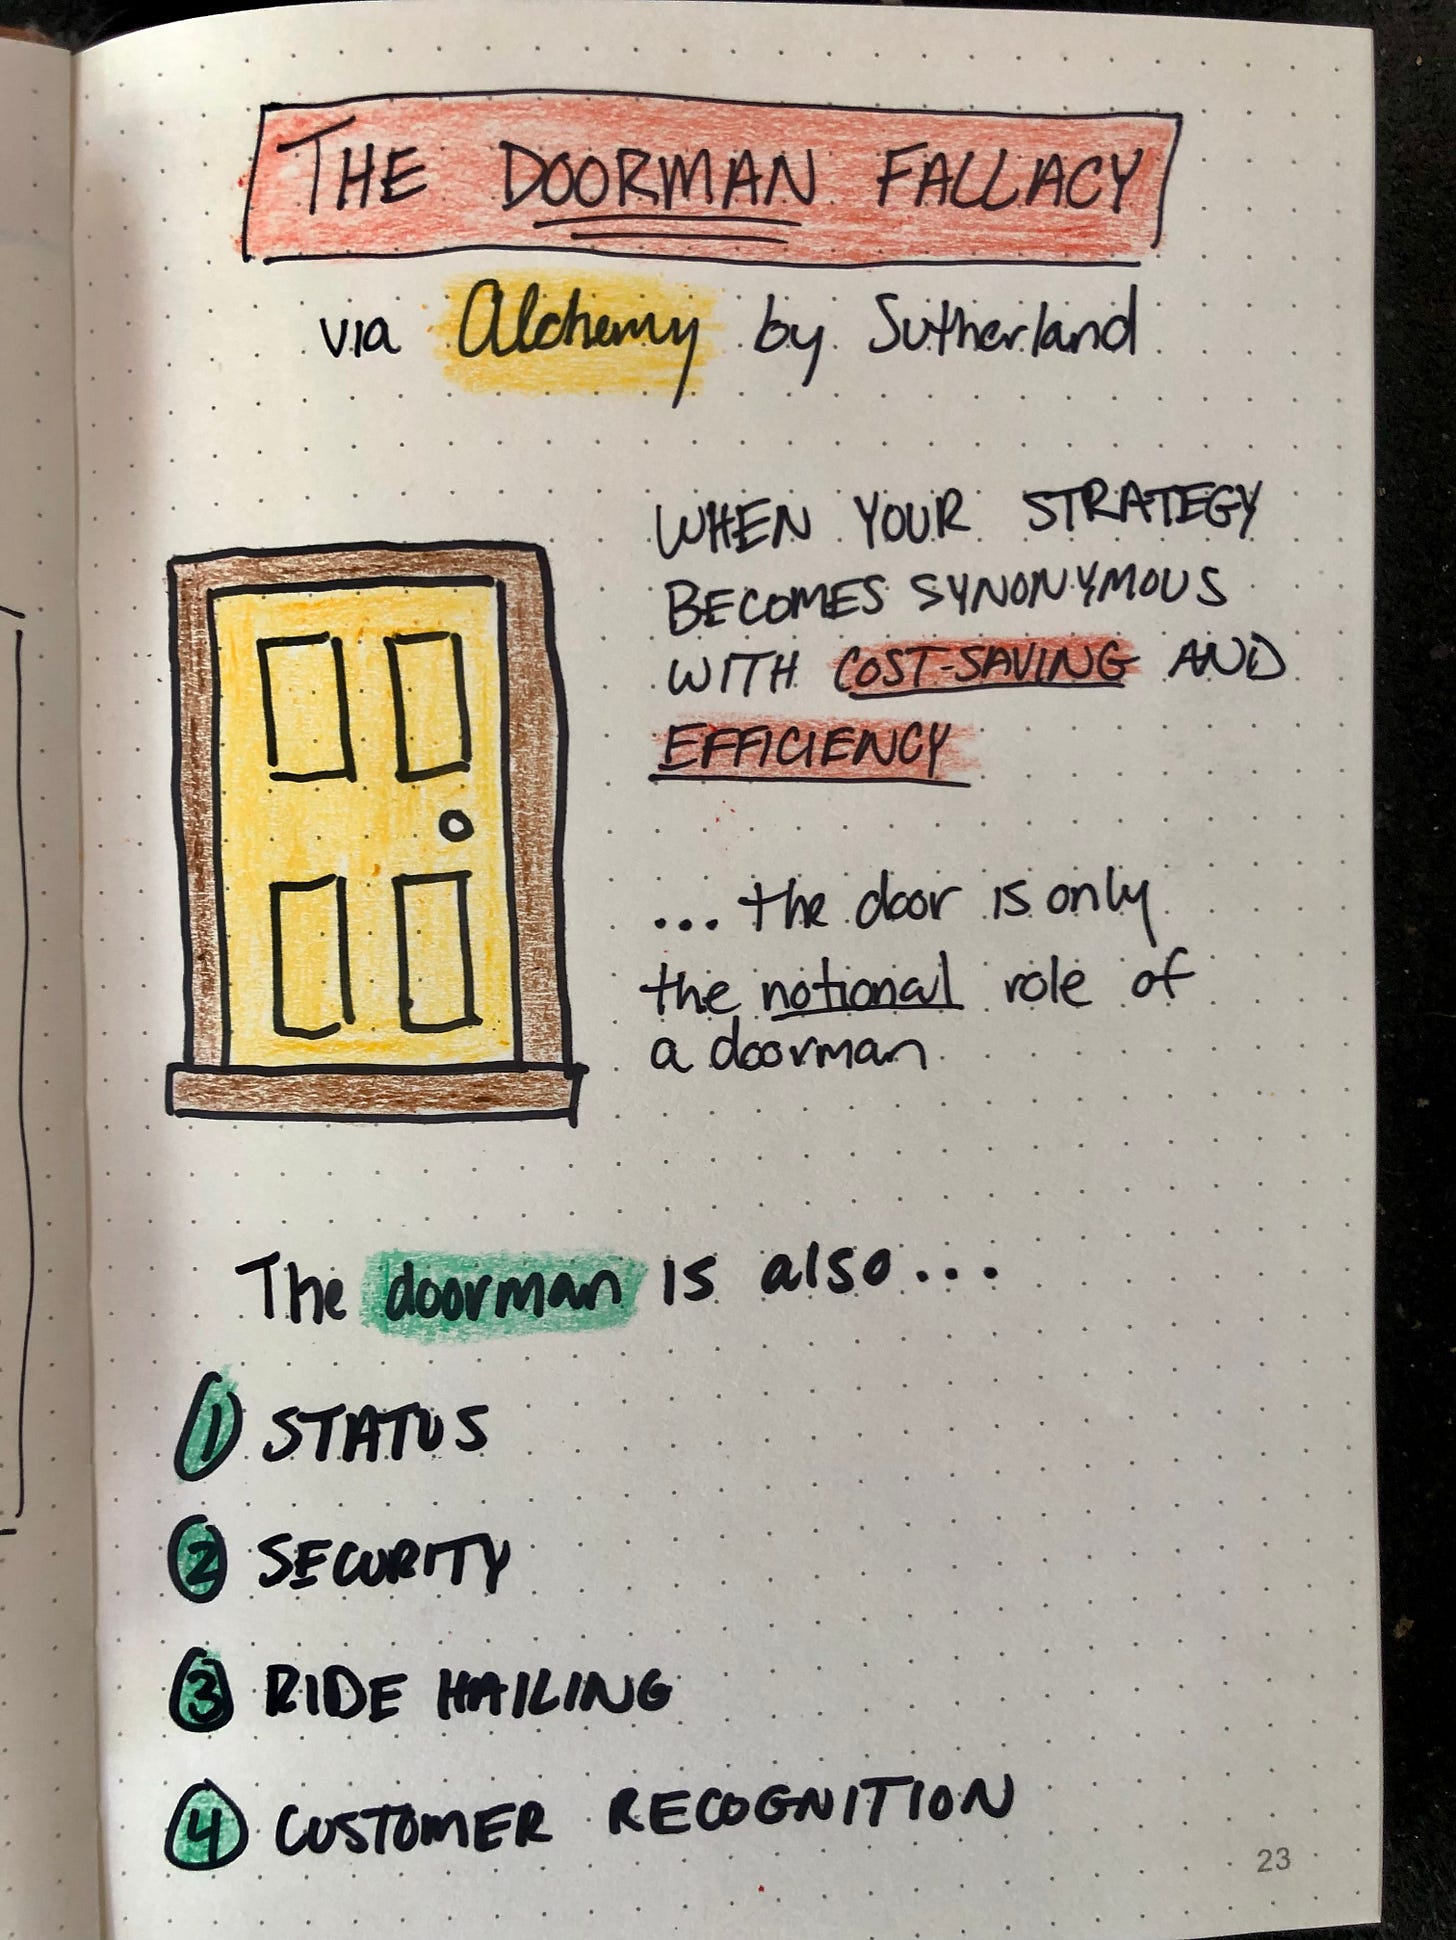 THE DOORMAN FALLACY
via Alchemy by Sutherland
WHEN YOUR STRATEGY
BECOMES SYNONYMOUS
WITH COST-SAVING AND
EFFICIENCY
... the door is only
the notional role of
a doorman
The doorman is also...
1 STATUS
2 SECURITY
3 RIDE HAILING
4 CUSTOMER RECOGNITION
23